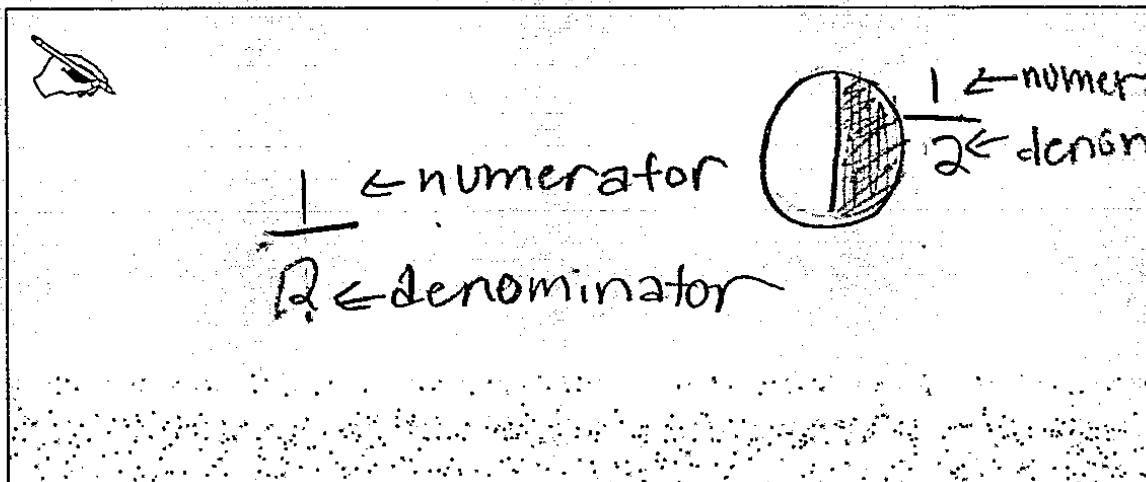 1 ← numerator
2 ← denominator
1 ← numer
2 ← denom